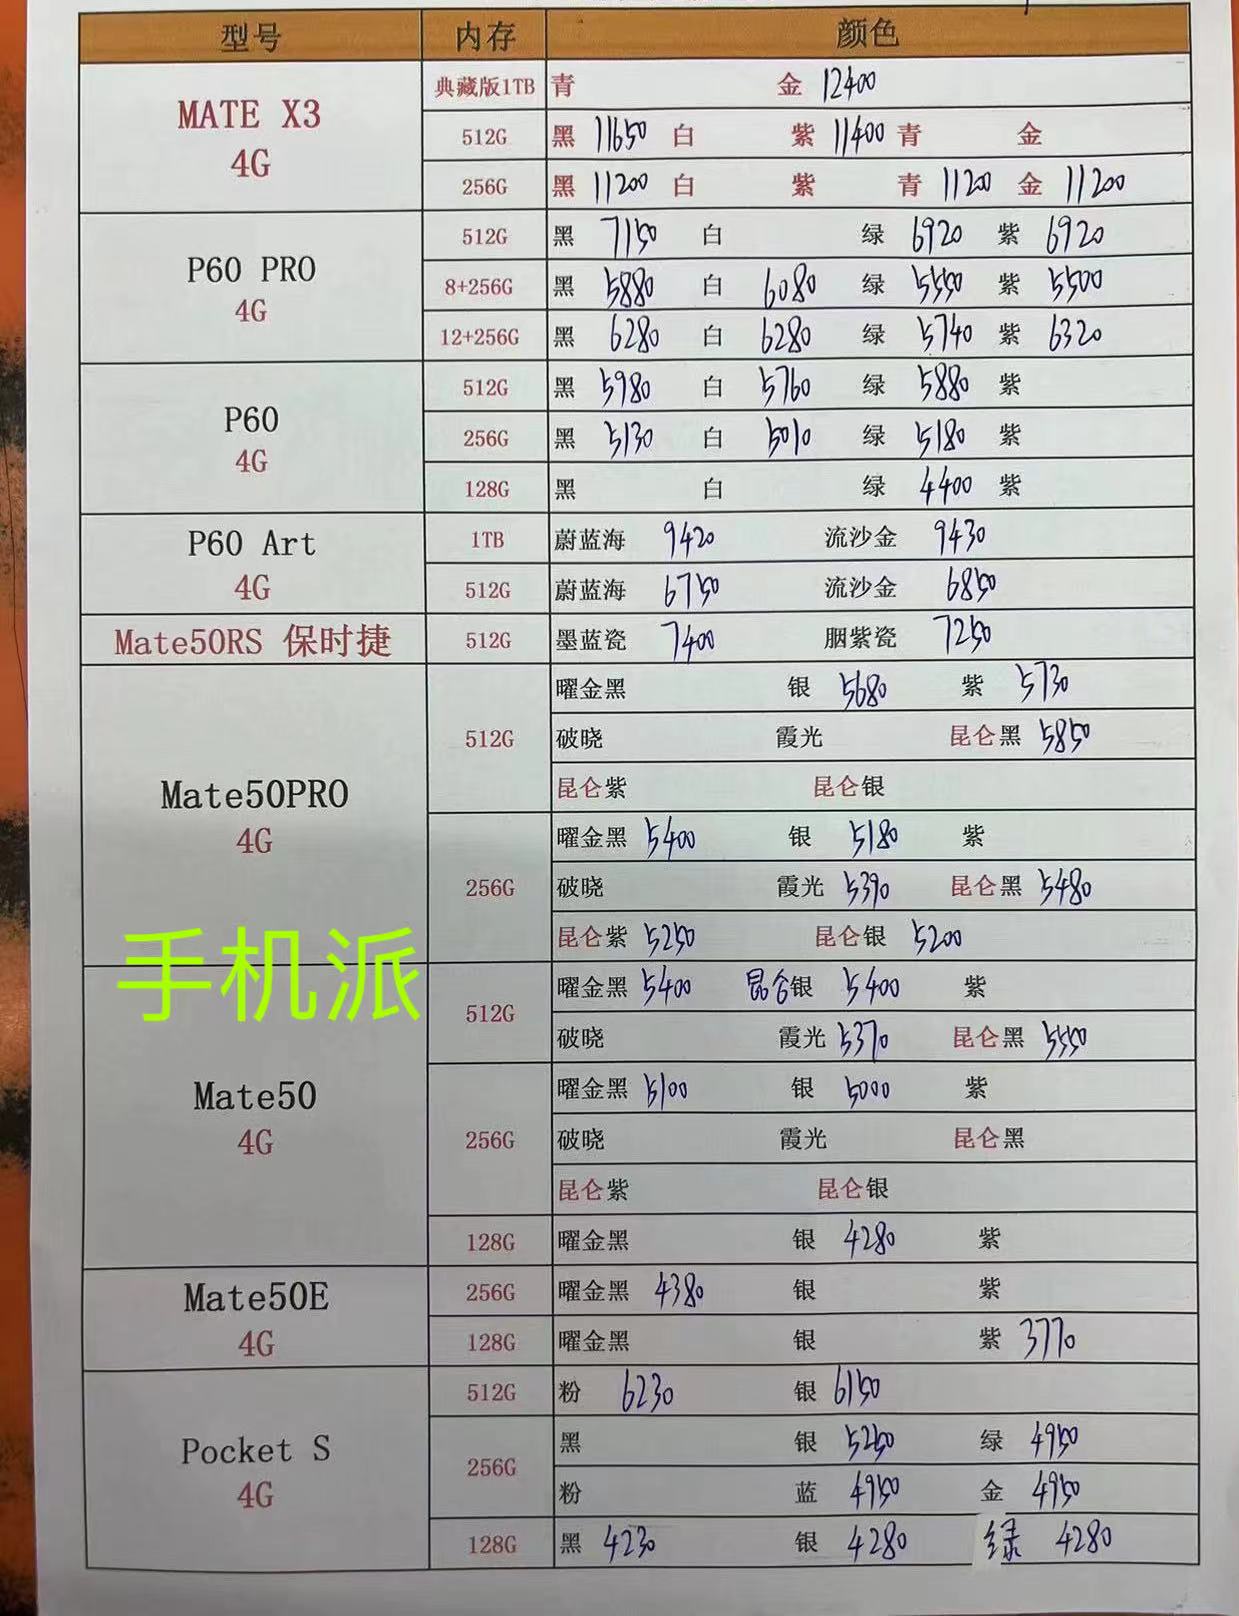 型号 内存 颜色
MATE X3
4G
典藏版1TB 青 金 12400
512G 黑 11650 白 紫 11400 青 金
256G 黑 11200 白 紫 青 11200 金 11200
P60 PRO
4G
512G 黑 7150 白 绿 6920 紫 6920
8+256G 黑 5880 白 6080 绿 5550 紫 5500
12+256G 黑 6280 白 6280 绿 5740 紫 6320
P60
4G
512G 黑 5980 白 5760 绿 5880 紫
256G 黑 5130 白 5010 绿 5180 紫
128G 黑 白 绿 4400 紫
P60 Art
4G
1TB 蔚蓝海 9420 流沙金 9430
512G 蔚蓝海 6750 流沙金 6850
Mate50RS 保时捷 512G 墨蓝瓷 7400 胭紫瓷 7250
Mate50PRO
4G
512G 曜金黑 银 5680 紫 5730
破晓 霞光 昆仑黑 5850
昆仑紫 昆仑银
256G 曜金黑 5400 银 5180 紫
破晓 霞光 5390 昆仑黑 5480
昆仑紫 5250 昆仑银 5200
手机派
Mate50
4G
512G 曜金黑 5400 昆仑银 5400 紫
破晓 霞光 5370 昆仑黑 5550
256G 曜金黑 5100 银 5000 紫
破晓 霞光 昆仑黑
昆仑紫 昆仑银
128G 曜金黑 银 4280 紫
Mate50E
4G
256G 曜金黑 4380 银 紫
128G 曜金黑 银 紫 3770
Pocket S
4G
512G 粉 6230 银 6150
256G 黑 银 5250 绿 4950
粉 蓝 4950 金 4950
128G 黑 4230 银 4280 绿 4280